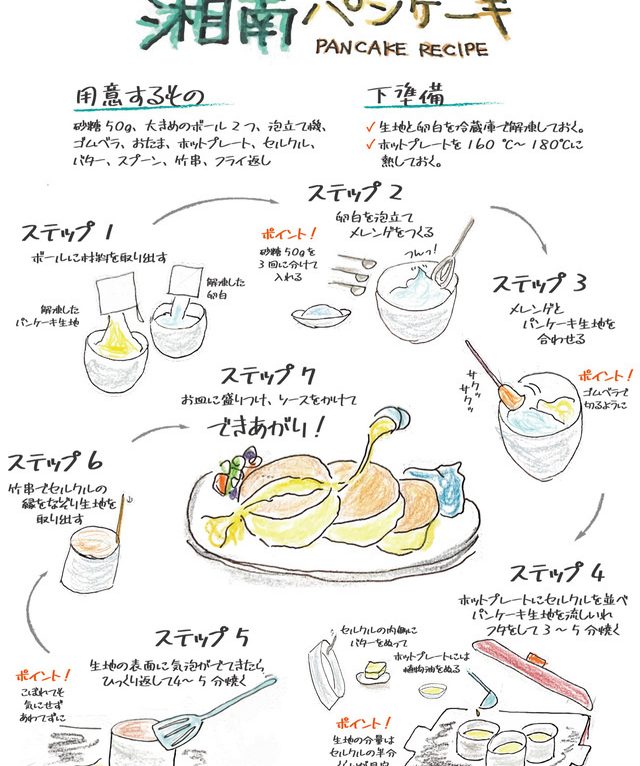 湘南パンケーキ
PANCAKE RECIPE
用意するもの
砂糖50g、大きめのボール2つ、泡立て機、
ゴムベラ、おたま、ホットプレート、セルクル、
バター、スプーン、竹串、フライ返し
下準備
✓生地と卵白を冷蔵庫で解凍しておく。
✓ホットプレートを160℃~180℃に
熱しておく。
ステップ1
ボールに材料を取り出す
解凍した
パンケーキ生地
解凍した
卵白
ステップ2
卵白を泡立て
メレンゲをつくる
ポイント!
砂糖50gを
3回に分けて
入れる
つんっ!
ステップ3
メレンゲと
パンケーキ生地を
合わせる
サクッ
サクッ
ポイント!
ゴムベラで
切るように
ステップ4
ホットプレートにセルクルを並べ
パンケーキ生地を流しいれ
フタをして3~5分焼く
セルクルの内側に
バターをぬって
ホットプレートには
植物油をぬる
ポイント!
生地の分量は
セルクルの半分
くらいが目安
ステップ5
生地の表面に気泡がでてきたら
ひっくり返して4~5分焼く
ポイント!
こぼれても
気にせず
あわてずに
ステップ6
竹串でセルクルの
縁をなぞり生地を
取り出す
ステップ7
お皿に盛りつけ、ソースをかけて
できあがり!